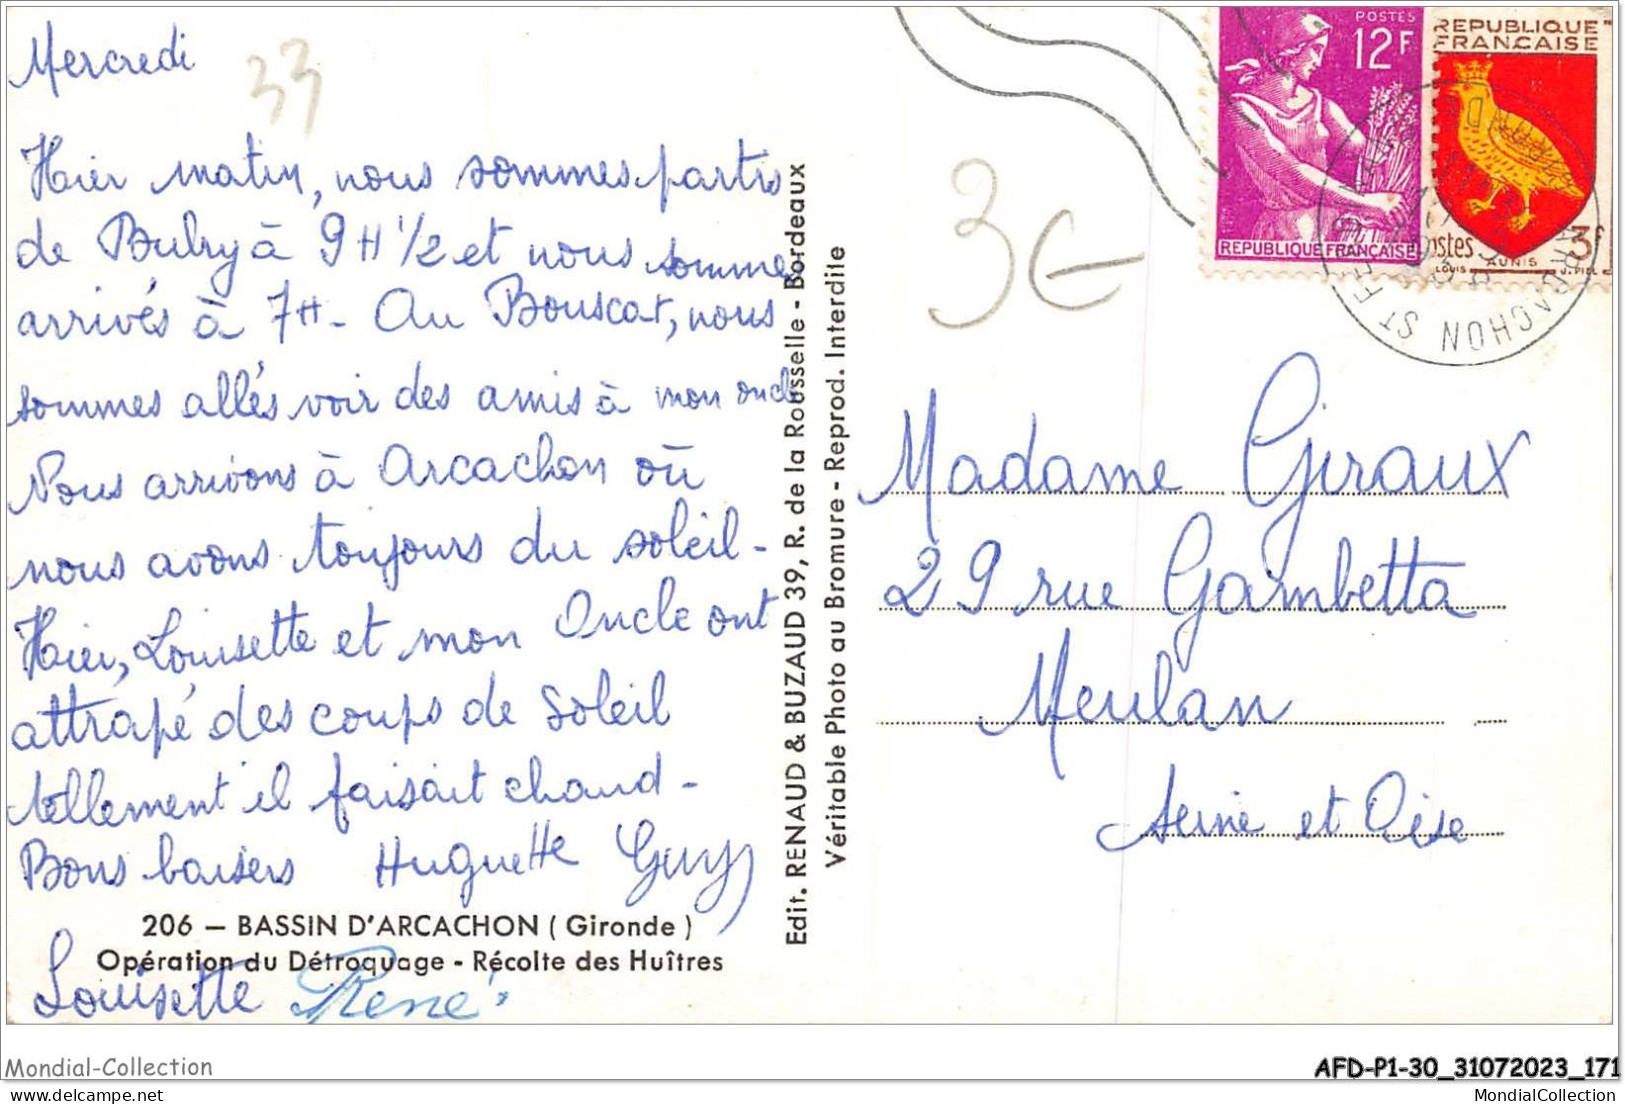 Mercredi
33
Hier matin, nous sommes partis
de Bubry à 9H 1/2 et nous sommes
arrivés à 7H - Au Bouscat, nous
sommes allés voir des amis à mon oncle
Nous arrivons à Arcachon où
nous avons toujours du soleil -
Hier, Louisette et mon Oncle ont
attrapé des coups de soleil
tellement il faisait chaud -
Bons baisers Huguette Guy
206 — BASSIN D'ARCACHON ( Gironde )
Opération du Détroquage - Récolte des Huîtres
Louisette René
Edit. RENAUD & BUZAUD 39, R. de la Rousselle - Bordeaux
Véritable Photo au Bromure - Reprod. Interdite
3€
POSTES
12F
REPUBLIQUE FRANÇAISE
REPUBLIQUE
FRANCAISE
ostes AUNIS 3f
LOUIS J. PIEL
ARCACHON
Madame Giraux
29 rue Gambetta
Meulan
Seine et Oise
Mondial-Collection
AFD-P1-30_31072023_171
delcampe.net
MondialCollection